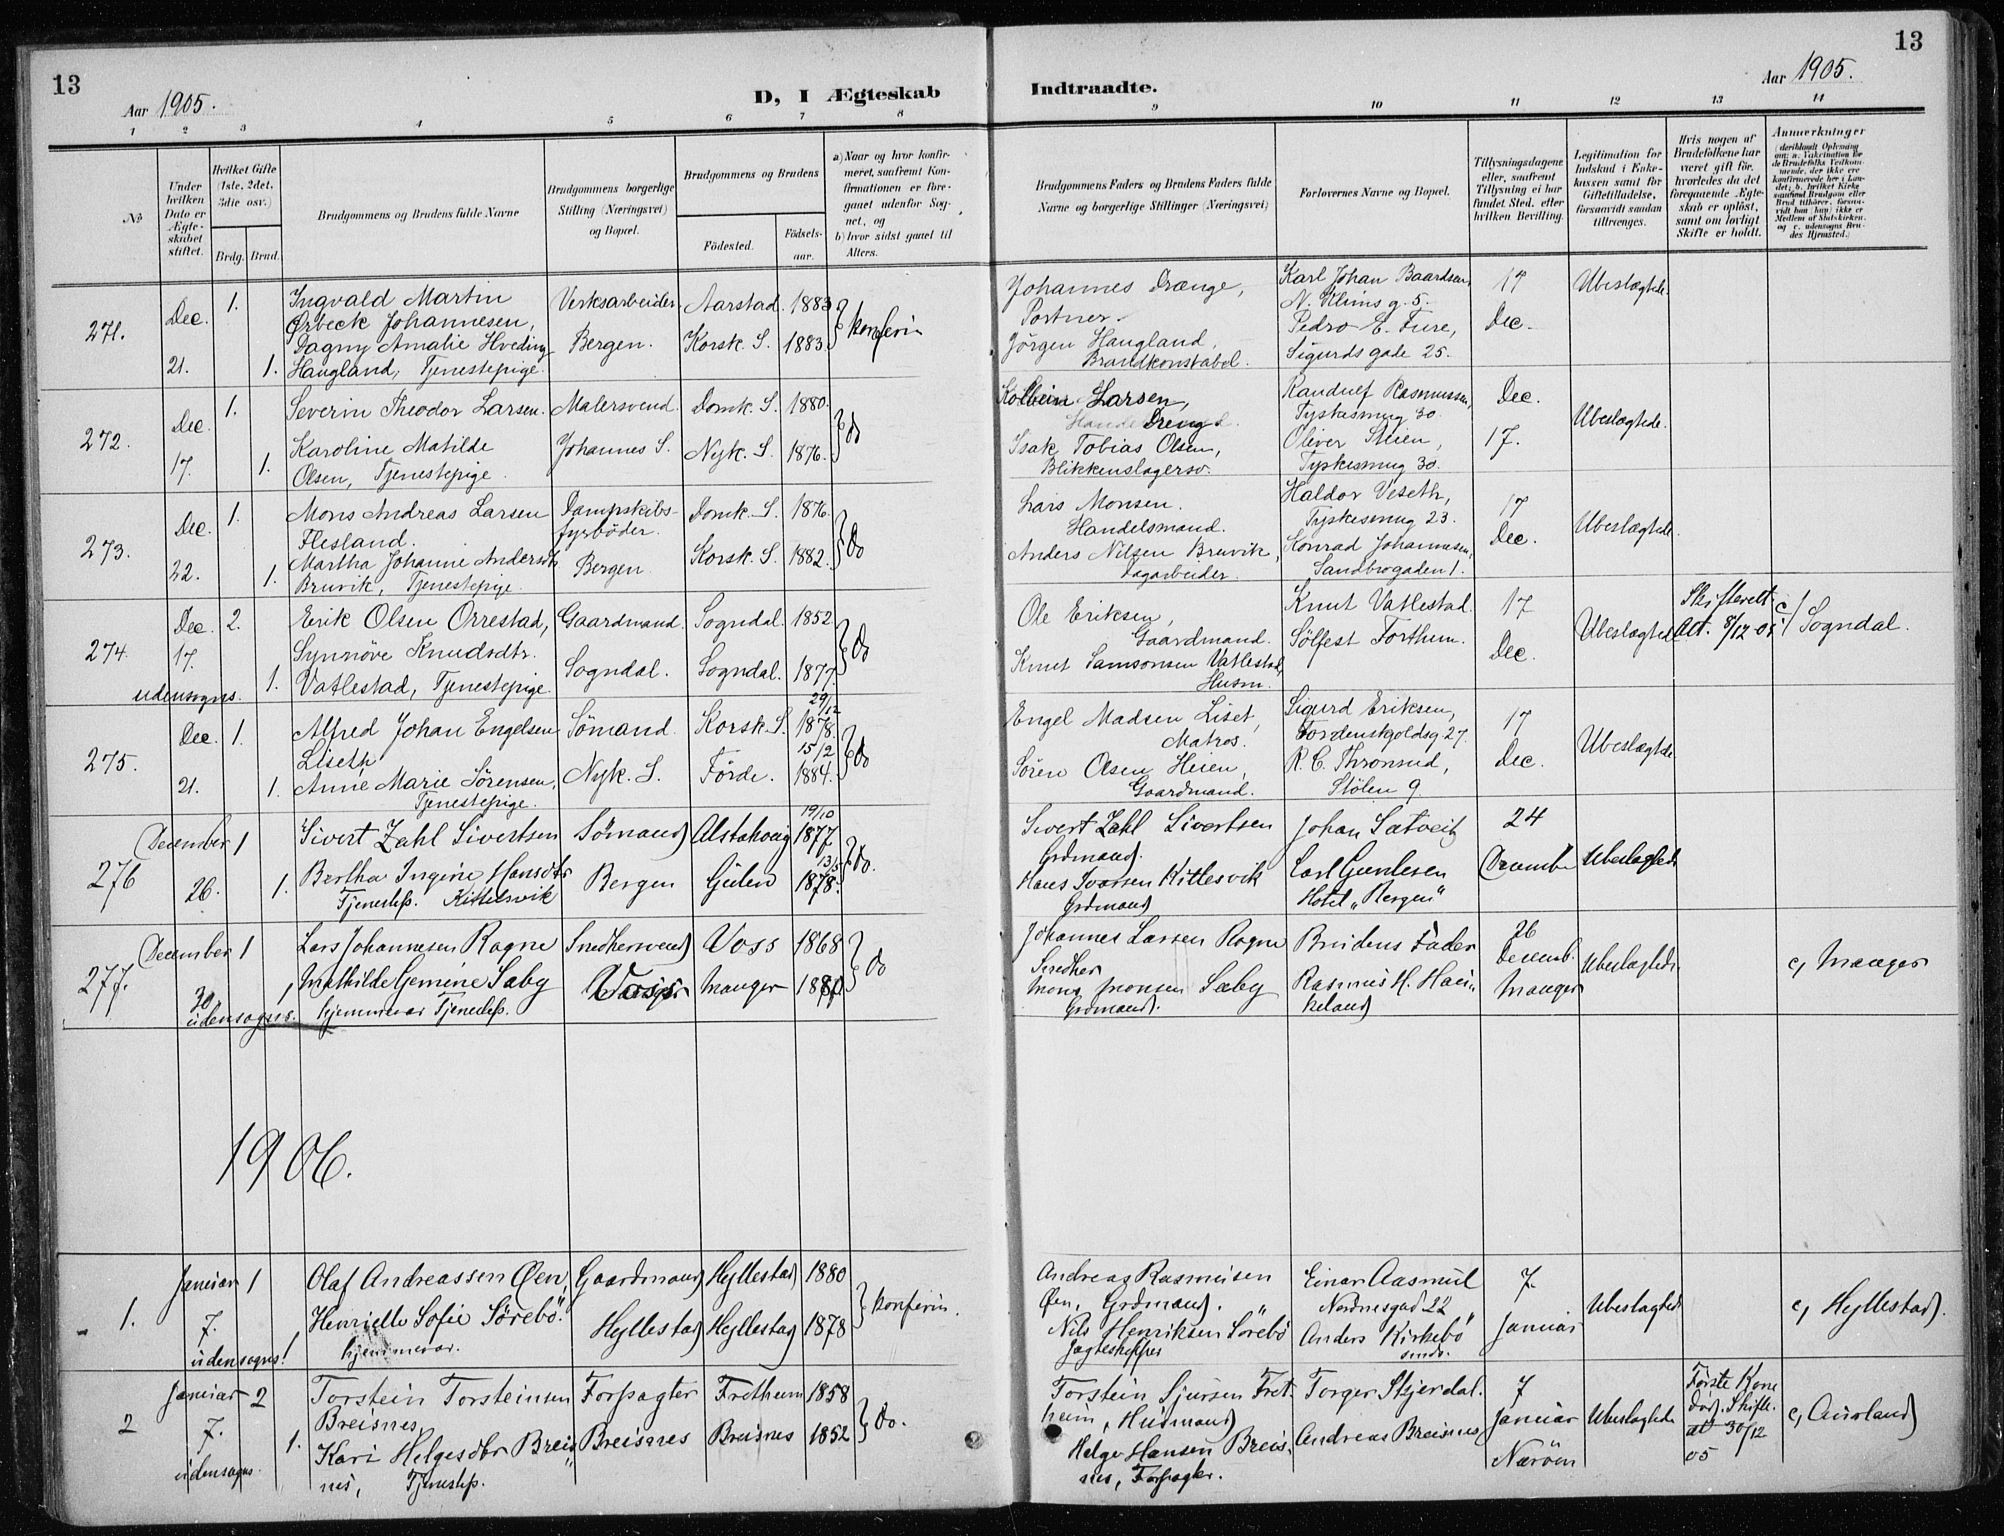 13
Aar 1905.
D, I Ægteskab
1 2 3 4 5 6 7 8
№
Under hvilken Dato er Ægteskabet stiftet.
Hvilket Gifte (1ste, 2det, 3die osv.)
Brdg. Brud.
Brudgommens og Brudens fulde Navne
Brudgommens borgerlige Stilling (Næringsvei) og Bopæl.
Brudgommens og Brudens
Födested.
Födselsaar.
a) Naar og hvor konfirmeret, saafremt Konfirmationen er foregaaet udenfor Sognet, og
b) hvor sidst gaaet til Alters.
271. Dec. 21. 1. 1.
Ingvald Martin
Ørbeck Johannesen,
Dagny Amalie Hveding
Haugland, Tjenestepige.
Verksarbeider
Bergen.
Aarstad. 1883
Korsk. S. 1883.
konferin
272. Dec. 17. 1. 1.
Severin Theodor Larsen.
Karoline Matilde
Olsen, Tjenestepige.
Malersvend.
Johannes S.
Domk. S. 1880.
Nyk. S. 1876.
do
273. Dec. 22. 1. 1.
Mons Andreas Larsen
Flesland.
Martha Johanne Andersdtr
Bruvik, Tjenestepige.
Dampskibs-
fyrböder.
Bergen.
Domk. S. 1876.
Korsk. S. 1882.
Do
274. Dec. 17. udensogns. 2. 1.
Erik Olsen Orrestad,
Synnöve Knudsdtr.
Vatlestad, Tjenestepige.
Gaardmand.
Sogndal.
Sogndal. 1852
Sogndal. 1877.
Do
275. Dec. 21. 1. 1.
Alfred Johan Engelsen
Liseth
Anne Marie Sörensen,
Tjenestepige.
Sömand.
Nyk. S.
Korsk. S. 29/12 1878.
Förde. 15/2 1884.
Do
276 December 26. 1 1.
Sivert Zahl Sivertsen
Bertha Ingine Hansdtr
Tjenestep. Kittelsvik
Sömand
Bergen
Alstahoug 19/10 1877
Gulen 1878.
do.
277. December 30 udensogns. 1 1
Lars Johannesen Rogne
Mathilde Gemine Sæby
hjemmevær Tjenestep.
Snedkersvend
Voss
Voss 1868
Manger
do
1906.
1. Januar 7. udensogns! 1 1
Olaf Andreassen Øen,
Henriette Sofie Sörebö.
hjemmevær.
Gaardmand
Hyllestad
Hyllestad 1880
Hyllestad 1878
konferin.
2 Januar 7. udensogns. 2 1.
Torstein Torsteinsen
Breisnes,
Kari Helgesdtr Breis
nes, Tjenestep.
Forpagter
Breisnes
Fretheim 1858
Breisnes 1852
Do.
13
Aar 1905.
Indtraadte.
9 10 11 12 13 14
Brudgommens Faders og Brudens Faders fulde Navne og borgerlige Stillinger (Næringsvei)
Forlovernes Navne og Bopæl.
Tillysningsdagene eller, saafremt Tillysning ei har fundet Sted, efter hvilken Bevilling.
Legitimation for Indskud i Enkekassen samt for Giftetilladelse, forsaavidt saadan tiltrænges.
Hvis nogen af Brudefolkene har været gift för, hvorledes da det foregaaende Ægteskab er oplöst, samt om lovligt Skifte er holdt.
Anmerkninger (deriblandt Oplysning om: a. Vakcination for de Brudefolks Vedkommende, der ikke ere konfirmerede her i Landet; b. hvilket Kirkesamfund Brudgom eller Brud tilhörer, forsaavidt han (hun) ikke er Medlem af Statskirken, og c. udensogns Brudes Hjemsted.)
Johannes Drange,
Portner.
Jörgen Haugland,
Brandkonstabel.
Karl Johan Baardsen
N. Klims g. 5.
Pedro E. Fure,
Sigurds gade 25.
17
Dec.
Ubeslægtede.
Larsen,
Isak Tobias Olsen,
Blikkenslagersv.
Randulf Rasmussen,
Tyskesmug 30.
Oliver Steien,
Tyskesmug 30.
Dec.
17.
Ubeslægtede.
Lars Monsen.
Handelsmand.
Anders Nilsen Bruvik,
Dagarbeider.
Haldor Veseth,
Tyskesmug 23.
Konrad Johannesen,
Sandbrogaden 1.
17
Dec.
Ubeslægtede.
Ole Eriksen,
Gaardmand.
Knut Samsonsen Vatlestad,
Husm.
Knut Vatlestad.
Sölfest Forthun.
17
Dec.
Ubeslægtede
Skifterett.
Att. 8/12-05
c/ Sogndal.
Engel Madsen Liset,
Matros.
Sören Olsen Heien,
Gaardmand.
Sigurd Eriksen,
Tordenskjoldsg. 27.
R. C. Thronsud,
Stölen 9
17
Dec.
Ubeslægtede
Sivert Zahl Sivertsen
Grdmand.
Hans Ivarsen Kittelsvik
Grdmand
Johan Sætveit
Carl Gundesen
Hotel „Bergen"
24
December
Ubeslægtede
Johannes Larsen Rogne
Snedker
Mons Monsen Sæby
Grdmand.
Brudens Fader
Rasmus H. Hau-
keland
26
Decemb.
Manger
Ubeslægtede.
c, Manger
Andreas Rasmusen
Øen, Grdmand.
Nils Henriksen Sörebö
Jagteskipper
Einar Aasmul
Nordnesgad 22
Anders Kirkebö
smds.
7.
Januar
Ubeslægtede
c, Hyllestad.
Torstein Sjursen Fret-
heim, Husmand
Helge Hansen Breis-
nes, Forpagter.
Torger Skjerdal.
Andreas Breisnes
7
Januar
Næröen
Ubeslægtede
Förste Kone
död. Skift.
at 30/12
05
c, Aurland